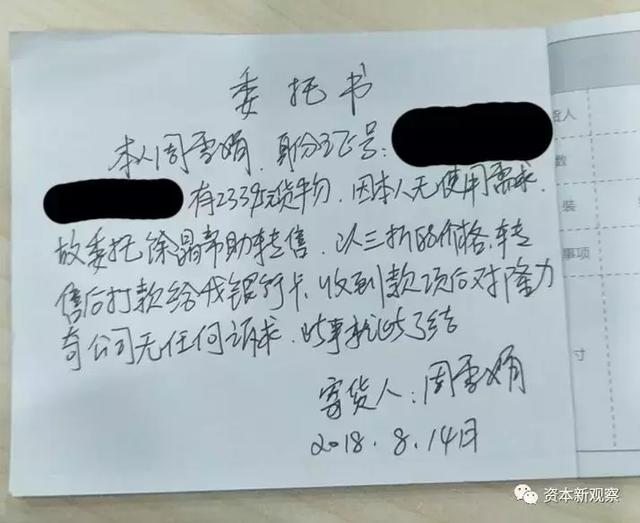 委托书
本人周雪娟，身份证号：
有2339元货物，因本人无使用需求，
故委托徐晶帮助转售，以三折的价格，转
售后打款给我银行卡，收到款项后对隆力
奇公司无任何诉求，此事就此了结
寄货人：周雪娟
2018.8.14日
货人
数
装
事项
寸
资本新观察